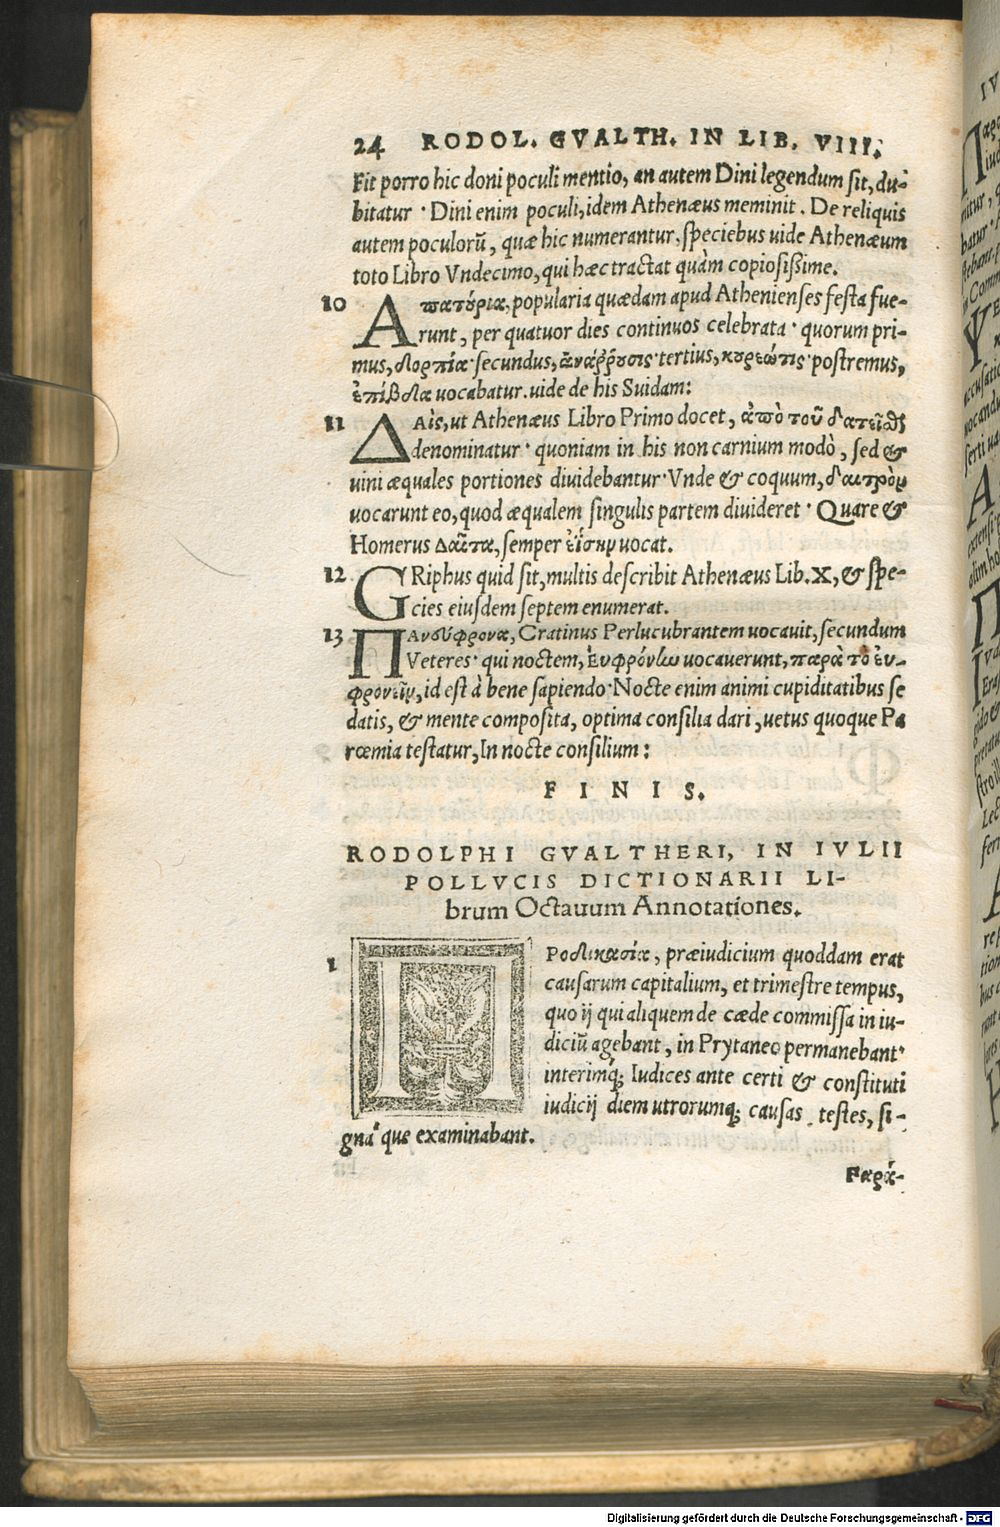 24 RODOL. GVALTH. IN LIB. VIII.
Fit porro hic doni poculi mentio, an autem Dini legendum sit, du-
bitatur · Dini enim poculi, idem Athenæus meminit. De reliquis
autem poculorũ, quæ hic numerantur, speciebus uide Athenæum
toto Libro Vndecimo, qui hæc tractat quàm copiosißime.
10 Απατόρια, popularia quædam apud Athenienses festa fue-
runt, per quatuor dies continuos celebrata · quorum pri-
mus, δορπία · secundus, ἀνάῤῥυσις · tertius, κουρεώτις · postremus,
ἐπίβδα uocabatur. uide de his Suidam:
11 ΔΑὶς, ut Athenæus Libro Primo docet, ἀπὸ τοῦ δατεῖσθαι
denominatur · quoniam in his non carnium modò, sed &
uini æquales portiones diuidebantur · Vnde & coquum, δαιτρὸμ
uocarunt eo, quod æqualem singulis partem diuideret · Quare &
Homerus Δαῖτα, semper ἐΐσημ uocat.
12 GRiphus quid sit, multis describit Athenæus Lib. X, & spe-
cies eiusdem septem enumerat.
13 ΠΑνσύφρονα, Cratinus Perlucubrantem uocauit, secundum
Veteres · qui noctem, Ἐυφρόνlω uocauerunt, παρὰ τὸ ἐυ-
φρονεῖμ, id est à bene sapiendo · Nocte enim animi cupiditatibus se
datis, & mente composita, optima consilia dari, uetus quoque Pa
rœmia testatur, In nocte consilium:
F I N I S.
RODOLPHI GVALTHERI, IN IVLII
POLLVCIS DICTIONARII LI-
brum Octauum Annotationes.
1 ΠΡοδικασία, præiudicium quoddam erat
causarum capitalium, et trimestre tempus,
quo ij qui aliquem de cæde commissa in iu-
diciũ agebant, in Prytaneo permanebant ·
interimq; Iudices ante certi & constituti
iudicij diem utrorumq; causas, testes, si-
gna que examinabant.
Παρά-
Digitalisierung gefördert durch die Deutsche Forschungsgemeinschaft - DFG